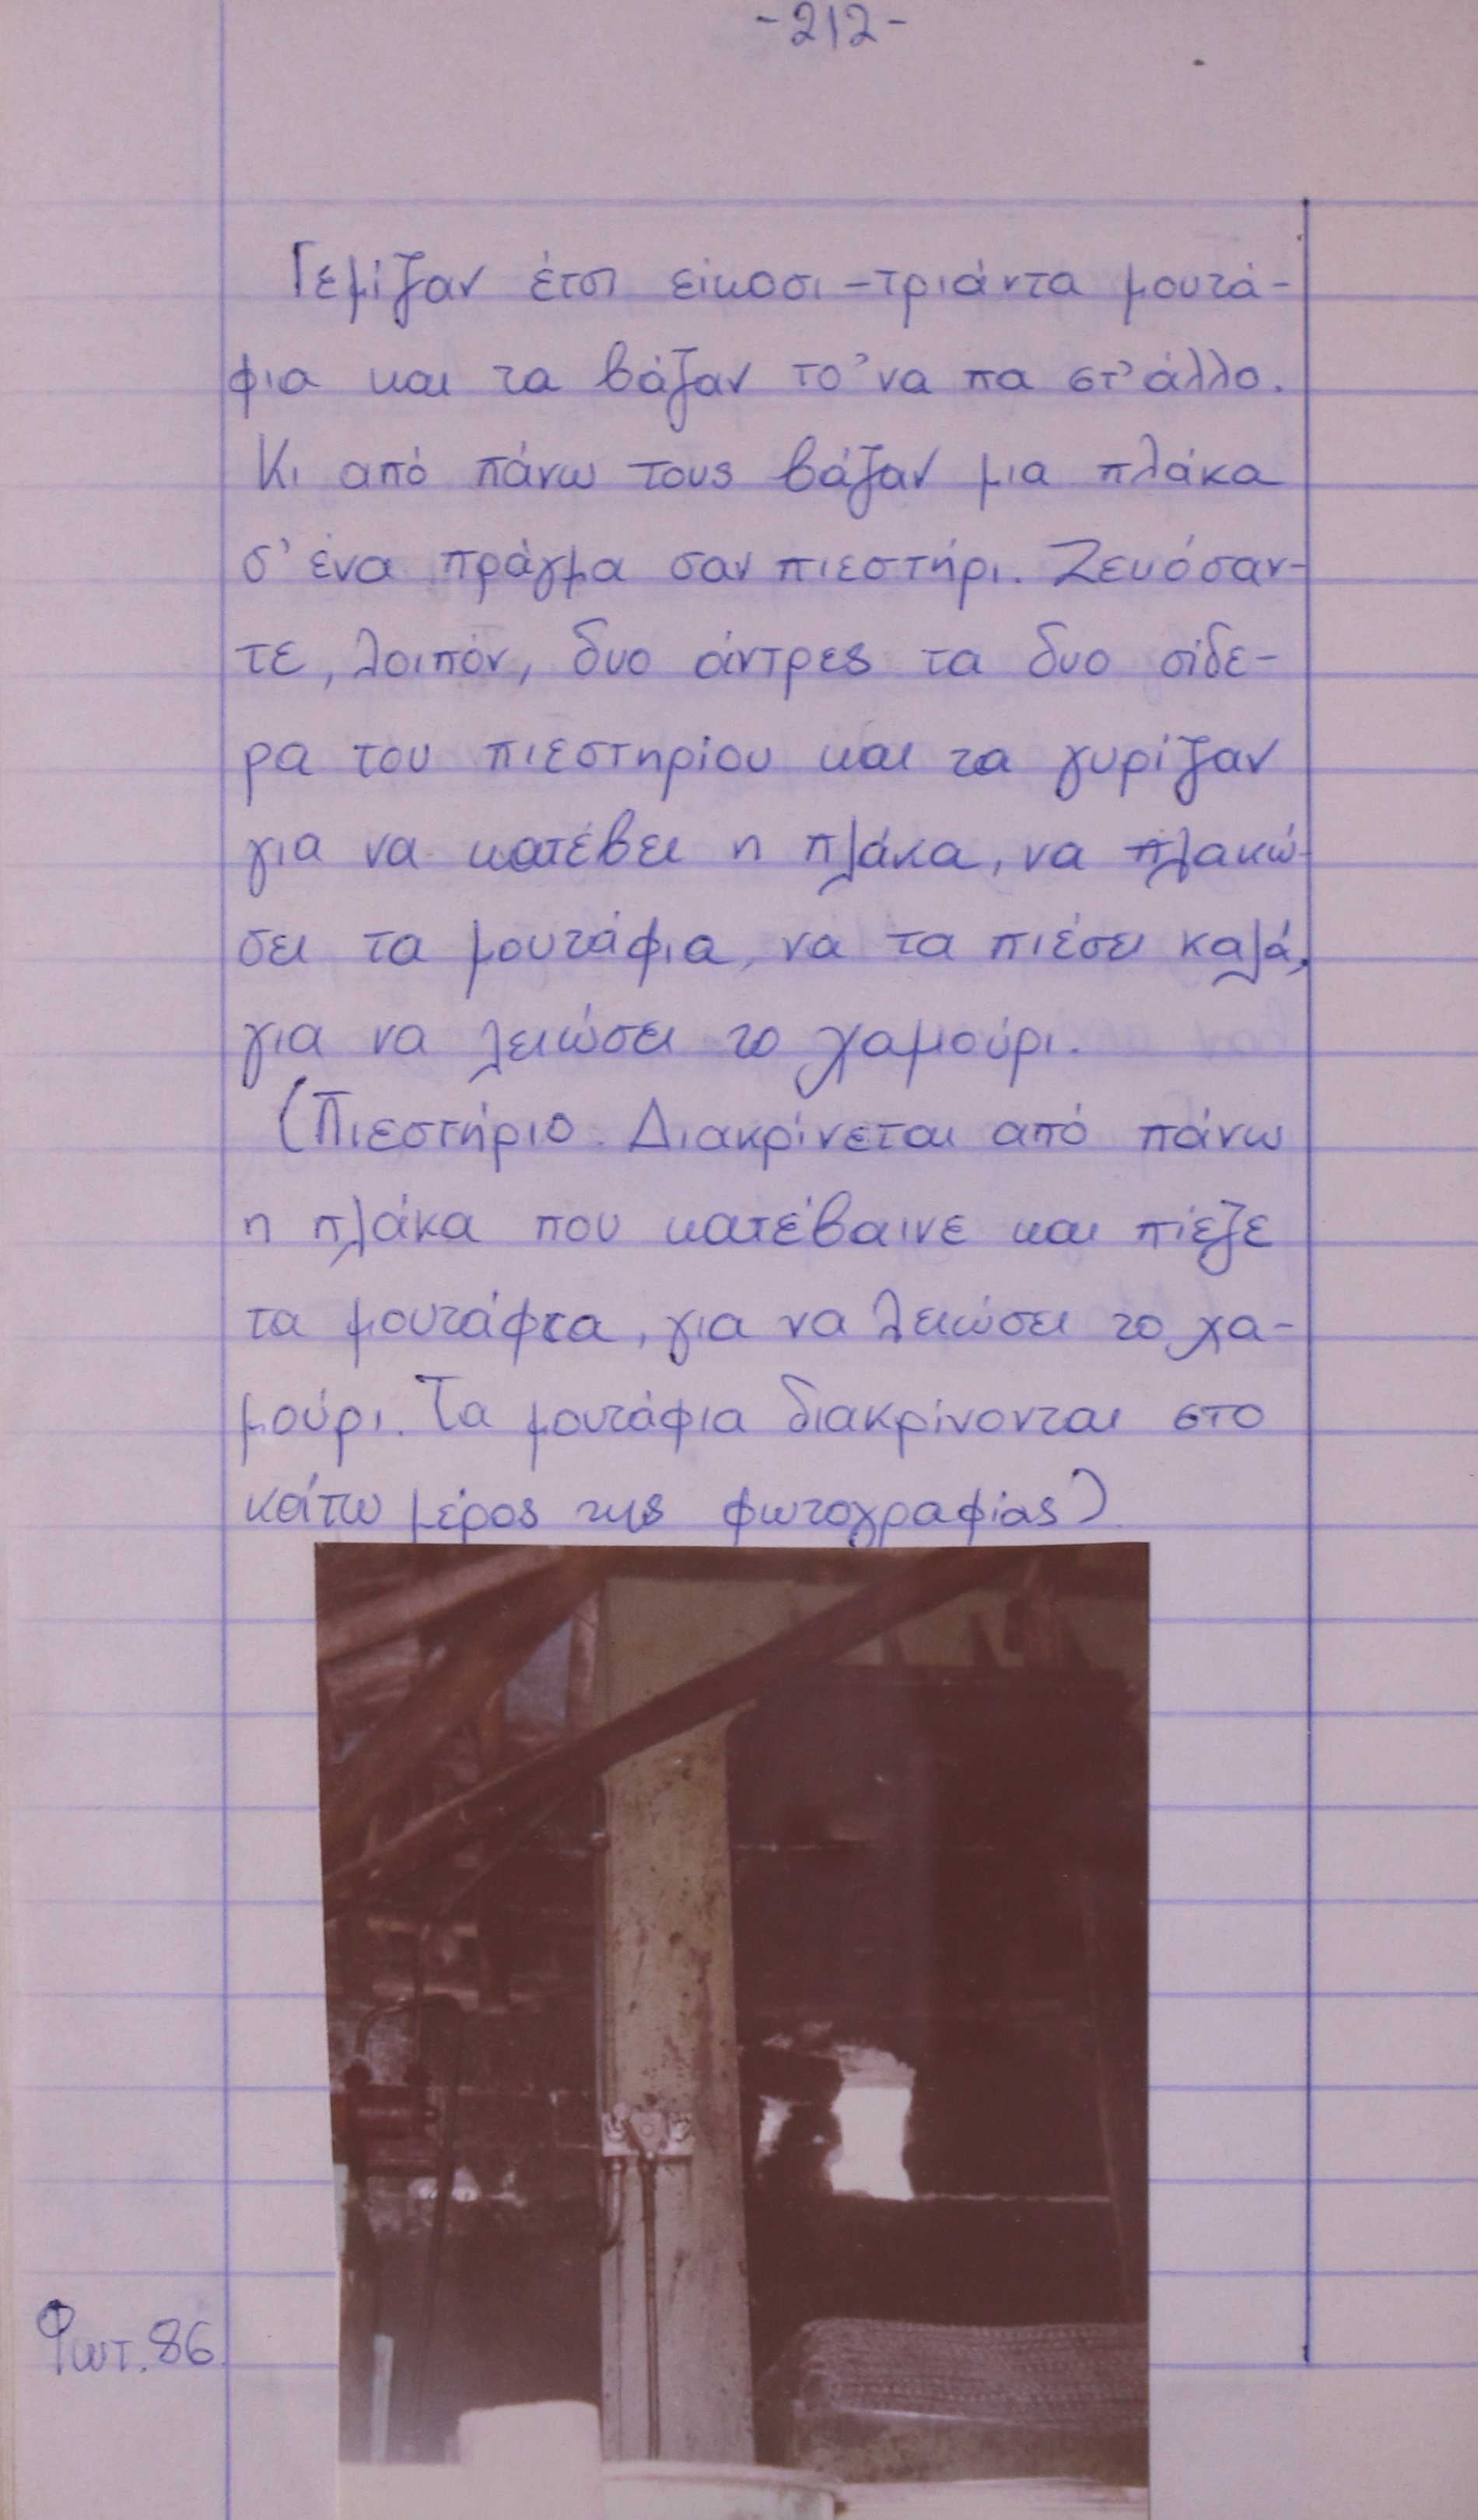 -212-
Γεμίζαν έτσι είκοσι-τριάντα μουτά-
φια και τα βάζαν το'να πα στ'άλλο.
Κι από πάνω τους βάζαν μια πλάκα
σ' ένα πράγμα σαν πιεστήρι. Ζευόσαν-
τε, λοιπόν, δυο άντρες τα δυο σίδε-
ρα του πιεστηρίου και τα γυρίζαν
για να κατέβει η πλάκα, να πλακώ-
σει τα μουτάφια, να τα πιέσει καλά,
για να λειώσει το χαμούρι.
(Πιεστήριο. Διακρίνεται από πάνω
η πλάκα που κατέβαινε και πίεζε
τα μουτάφια, για να λειώσει το χα-
μούρι. Τα μουτάφια διακρίνονται στο
κάτω μέρος της φωτογραφίας).
Φωτ. 86